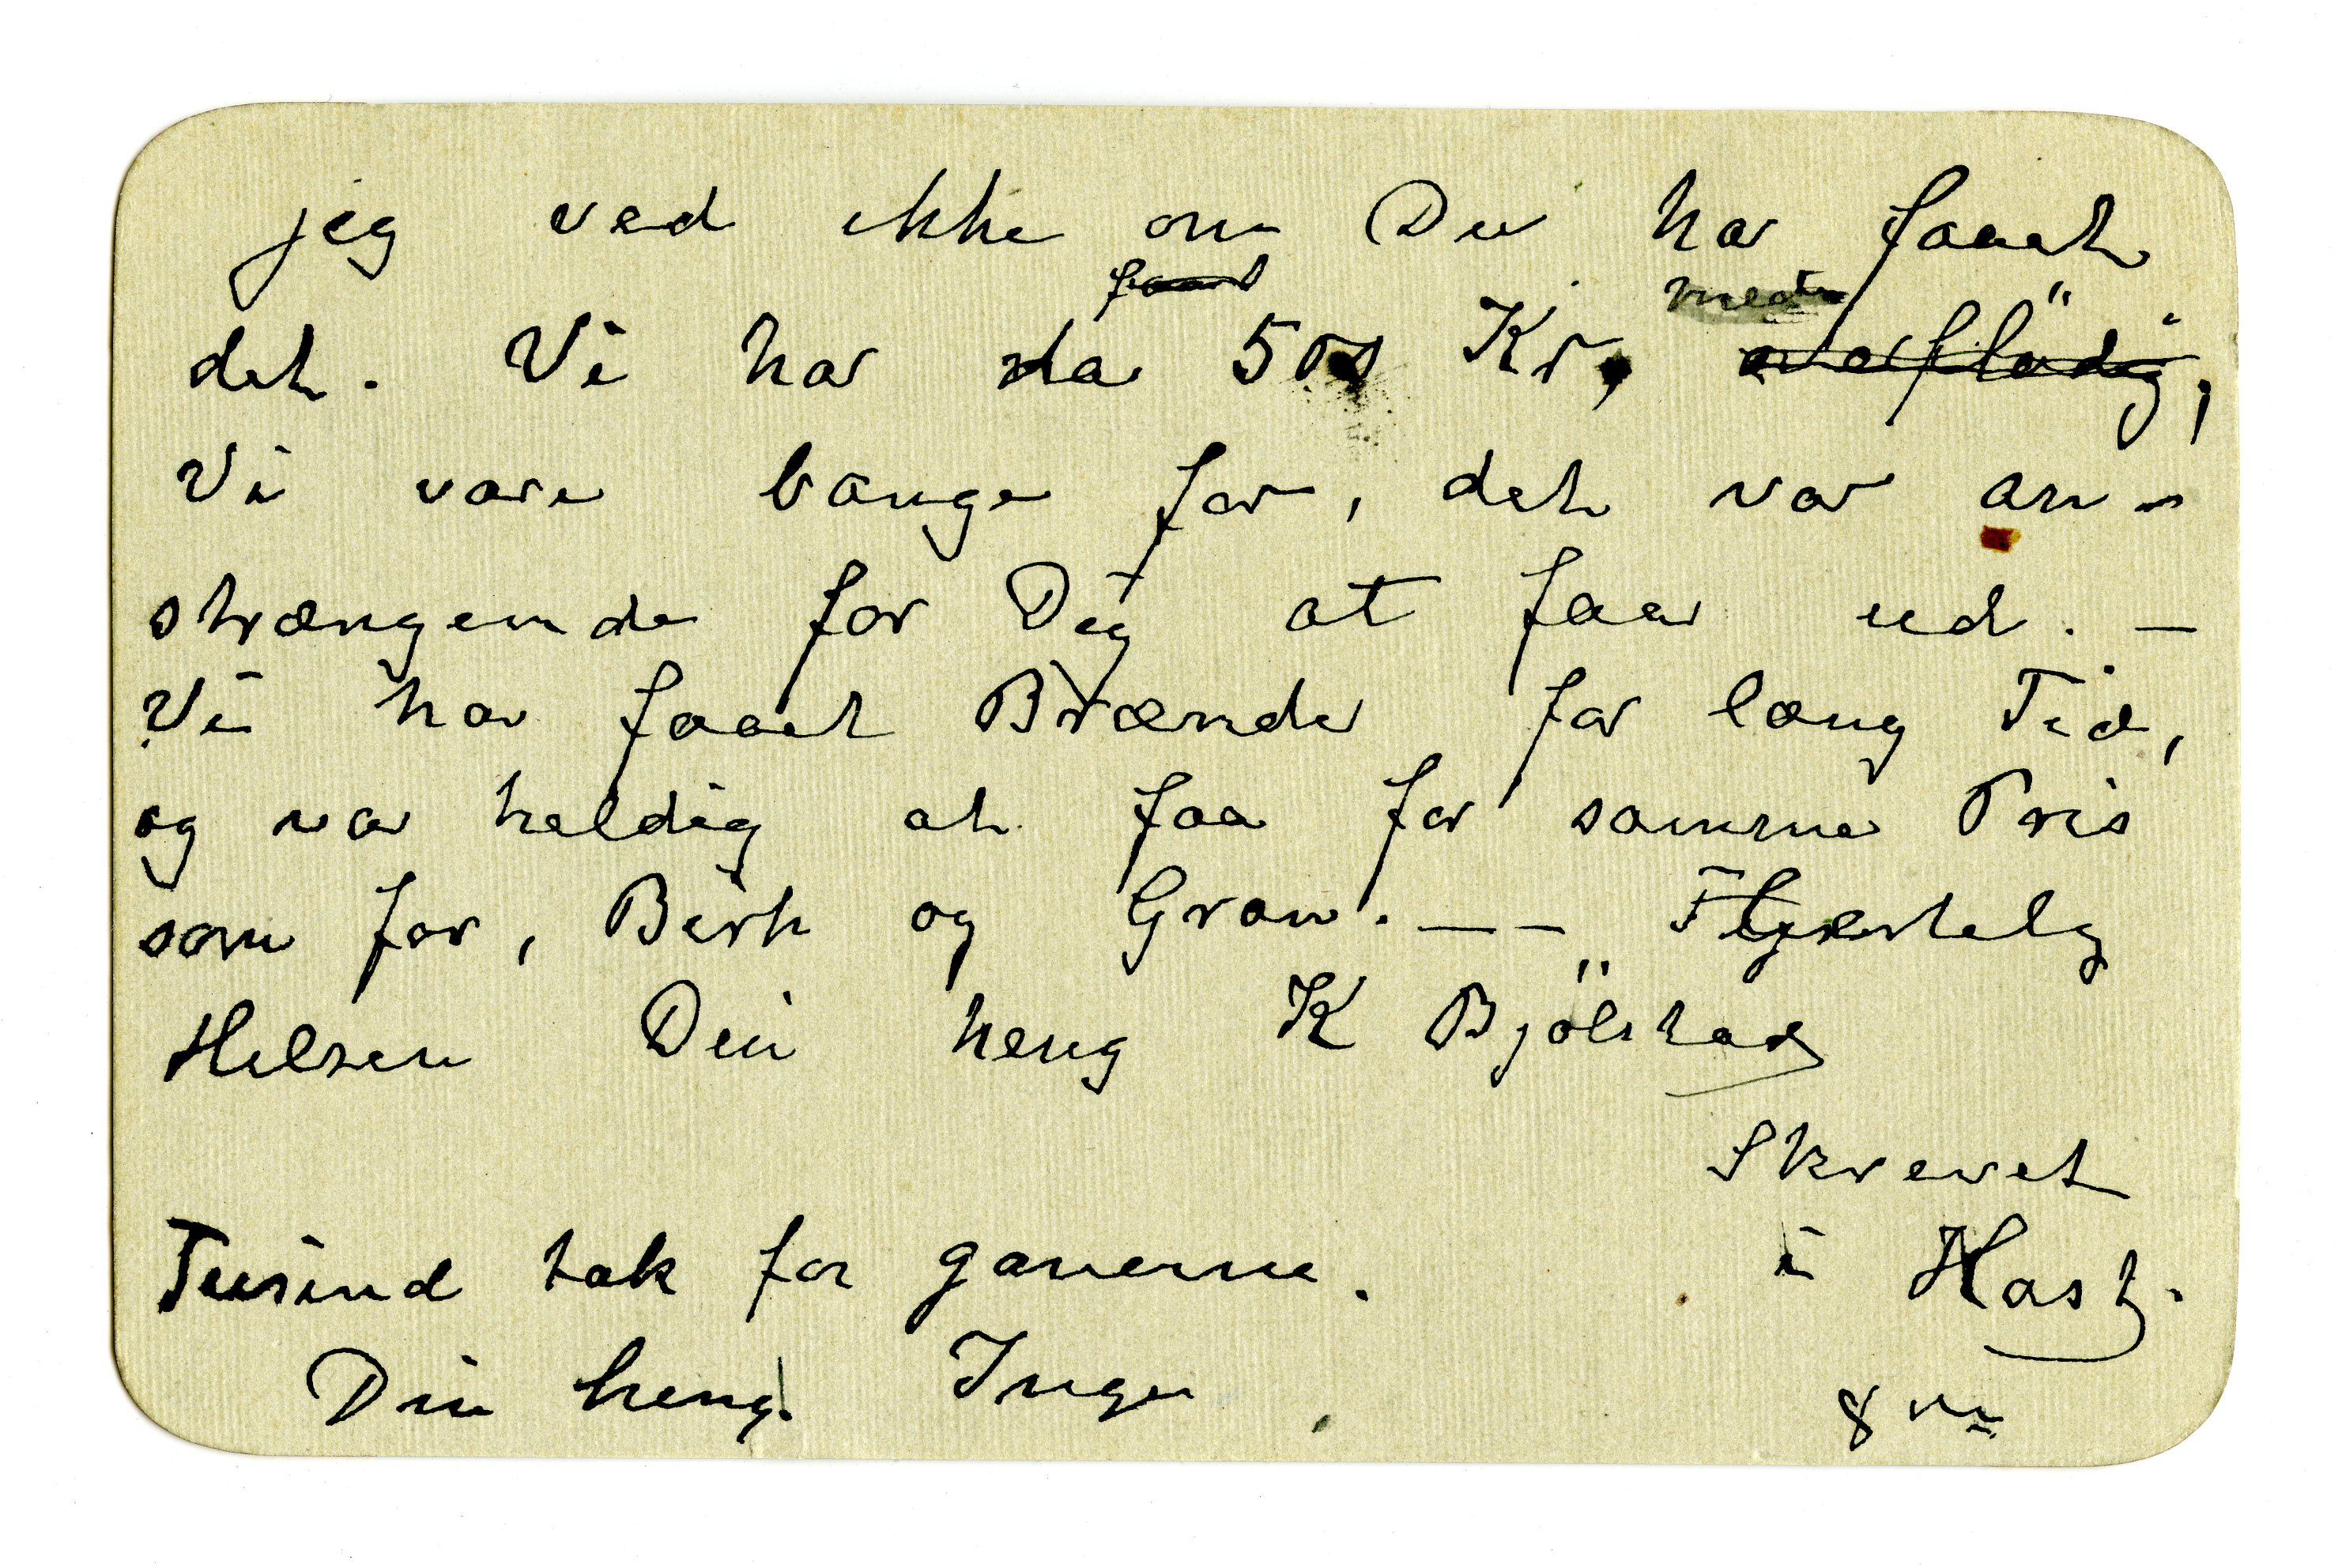 jeg ved ikke om Du har faaet
faaet med
det. Vi har da 50 Kr, overflödig,
Vi vare bange for, det var an-
strængende for Dig at faa ud. —
Vi har faaet Brænde for lang Tid,
og var heldig at faa for samme Pris
som før, Birk og Gran. — — Hjertelg
Helsen Din heng K Bjölstad
Skrevet
Tusind tak for gaverne. i Hast.
Din heng. Inga